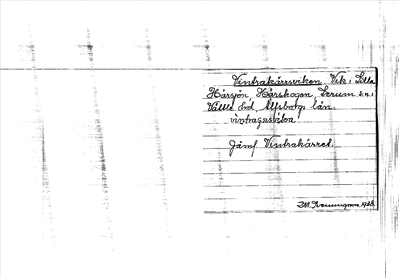 Vintrakärrsviken. Vik i Lilla
Härsjön, Härskogen, Lerum sn i
Vättle hd, Älfsborgs län.
vintragusviba
Jämf Vintrakärret.
1928